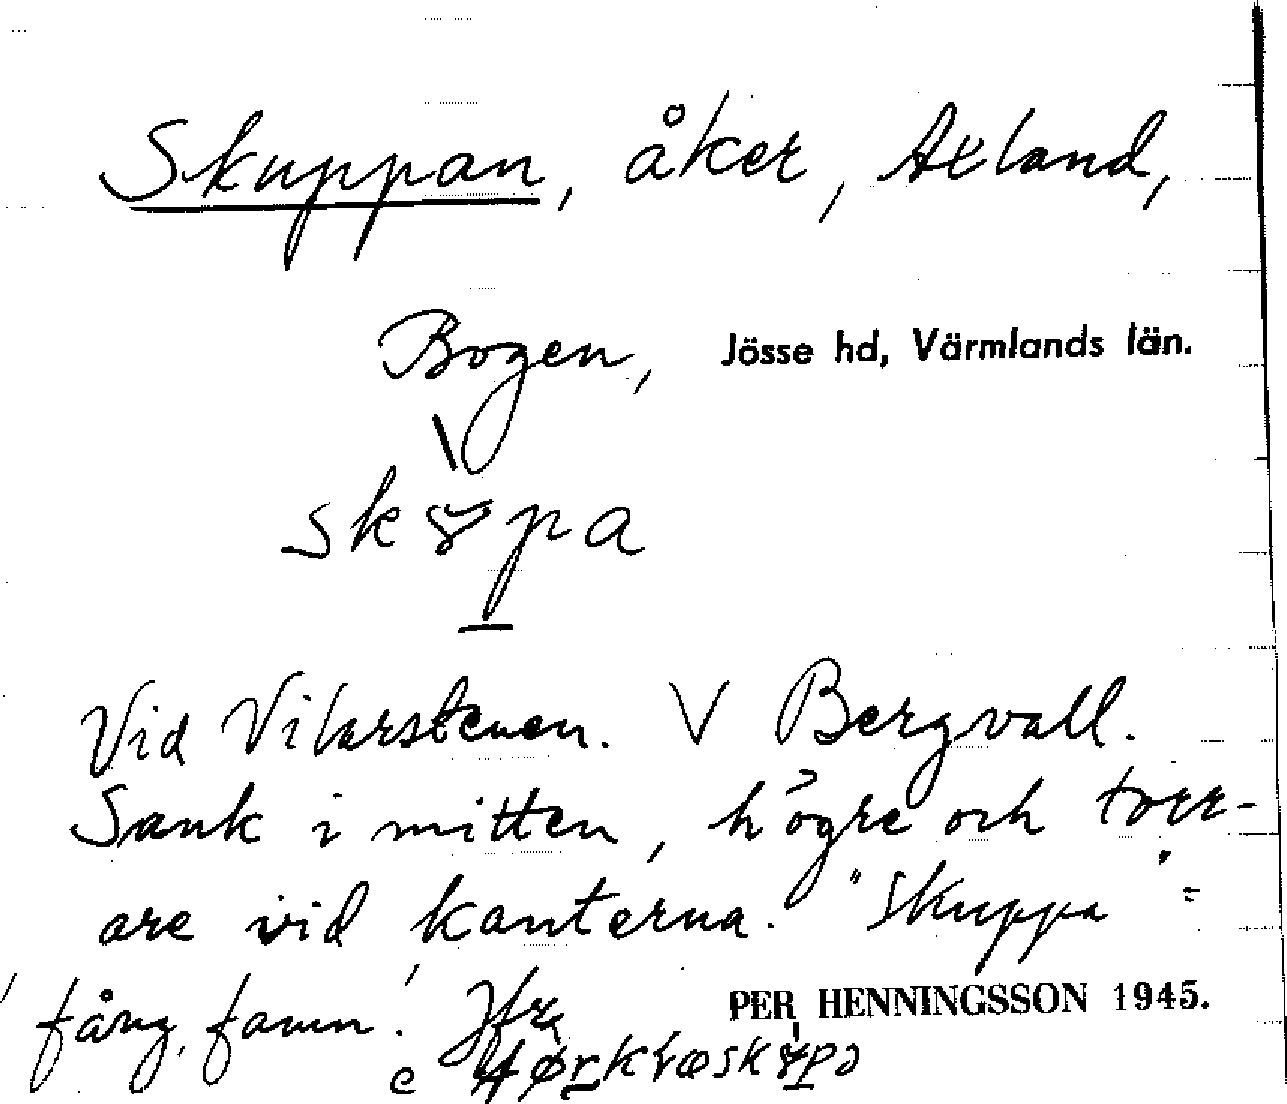 Skuppan, åker, Axland,
Bogen, Jösse hd, Värmlands län.
Vid Vilarstenen. V Bergvall.
Sank i mitten, högre och torr-
are vid kanterna. "Skuppa" =
'fång, famn'. Jfr
PER HENNINGSSON 1945.